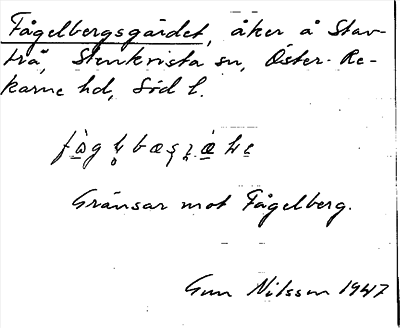 Fågelbergsgärdet, åker å Stav-
trå, Stenkvista sn, Öster-Re-
karne hd, Söd l.
Gränsar mot Fågelberg.
Gun Nilsson 1947